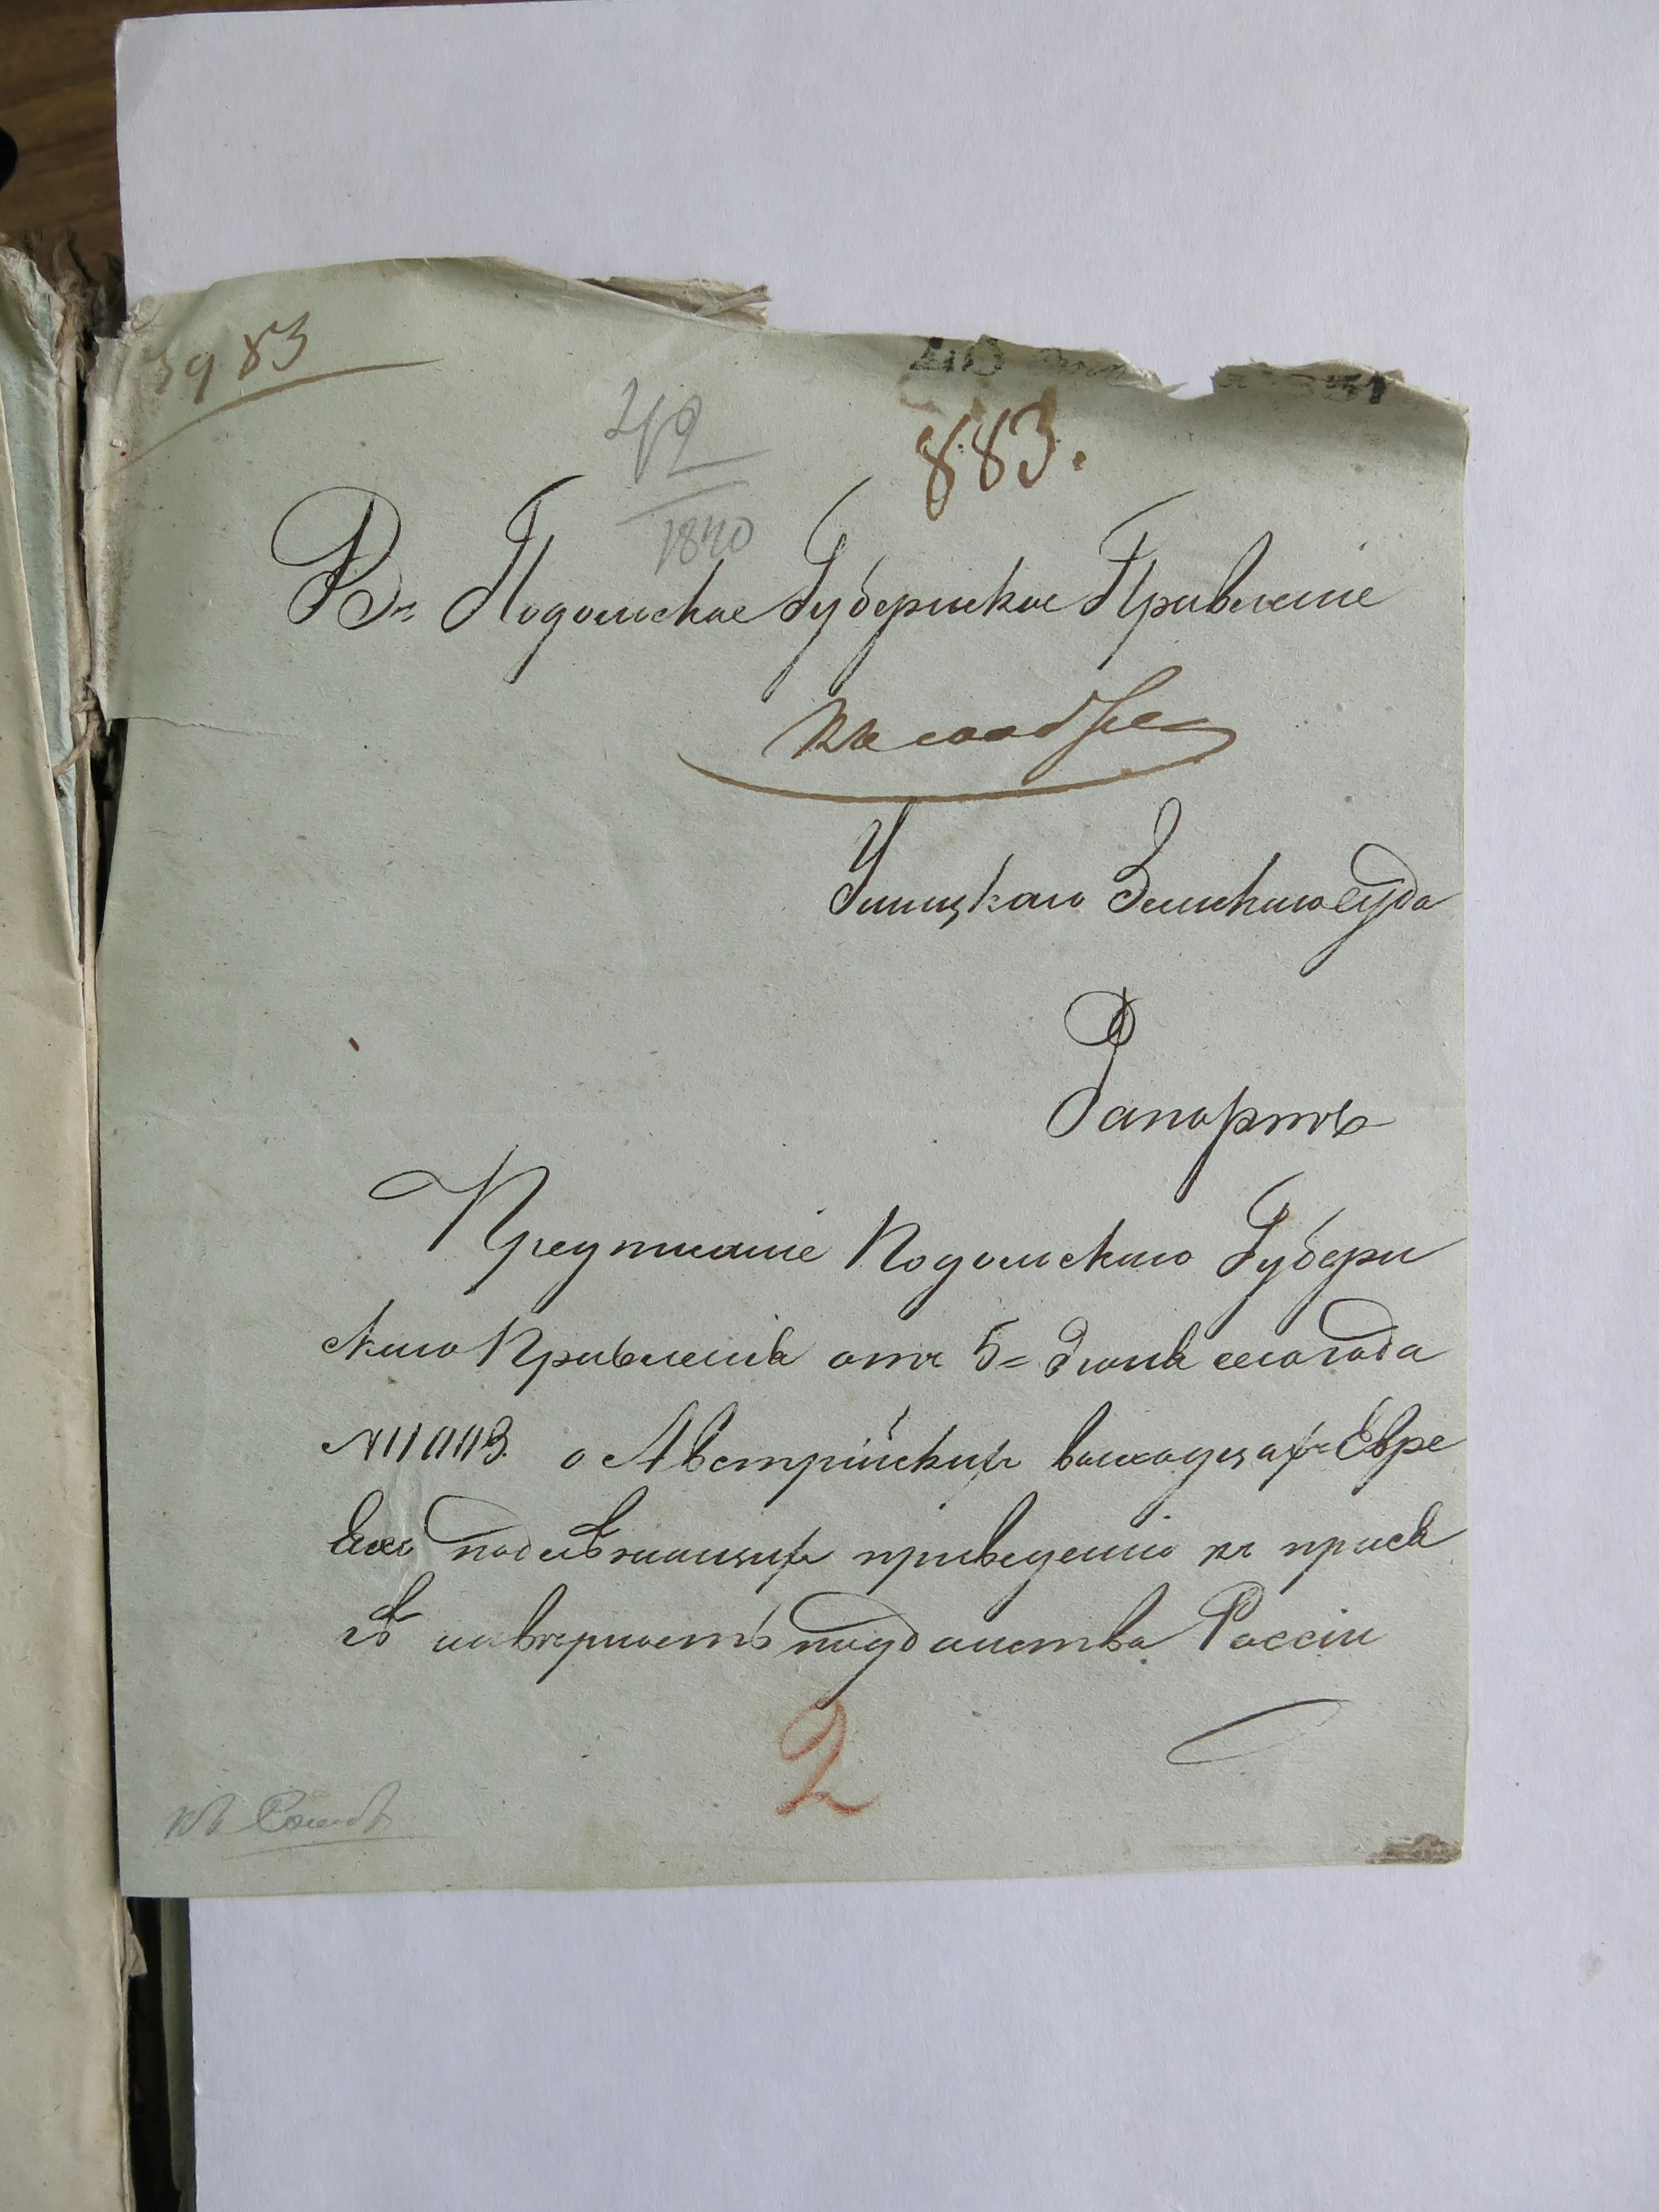 3983
883.
1840
Въ Подольское Губернское Правленіе
Ушицкаго Земскаго суда
Рапортъ
Предписаніе Подольскаго Губерн
скаго Правленія отъ 5= Іюня сего года
№ 11003. о Австрійскихъ выходцахъ Евре
яхъ подлѣжащихъ приведенію къ прися
гѣ на вѣрность подданства Россіи
2